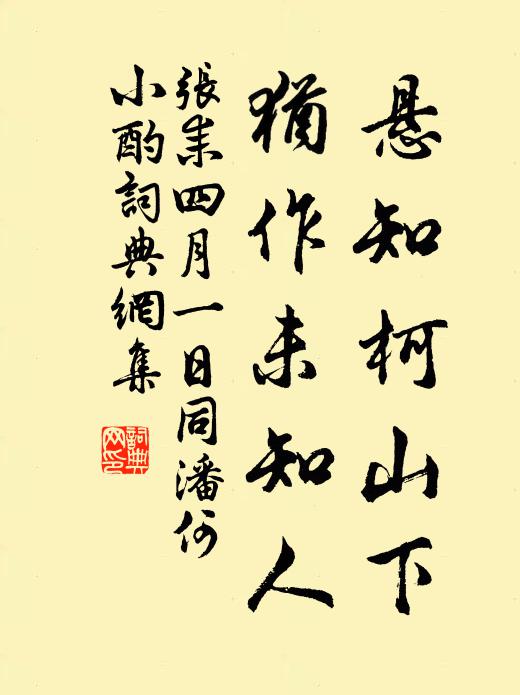 悬知柯山下
猶作未知人
張耒四月一日同潘何
小酌詞典網集
詞典
网印